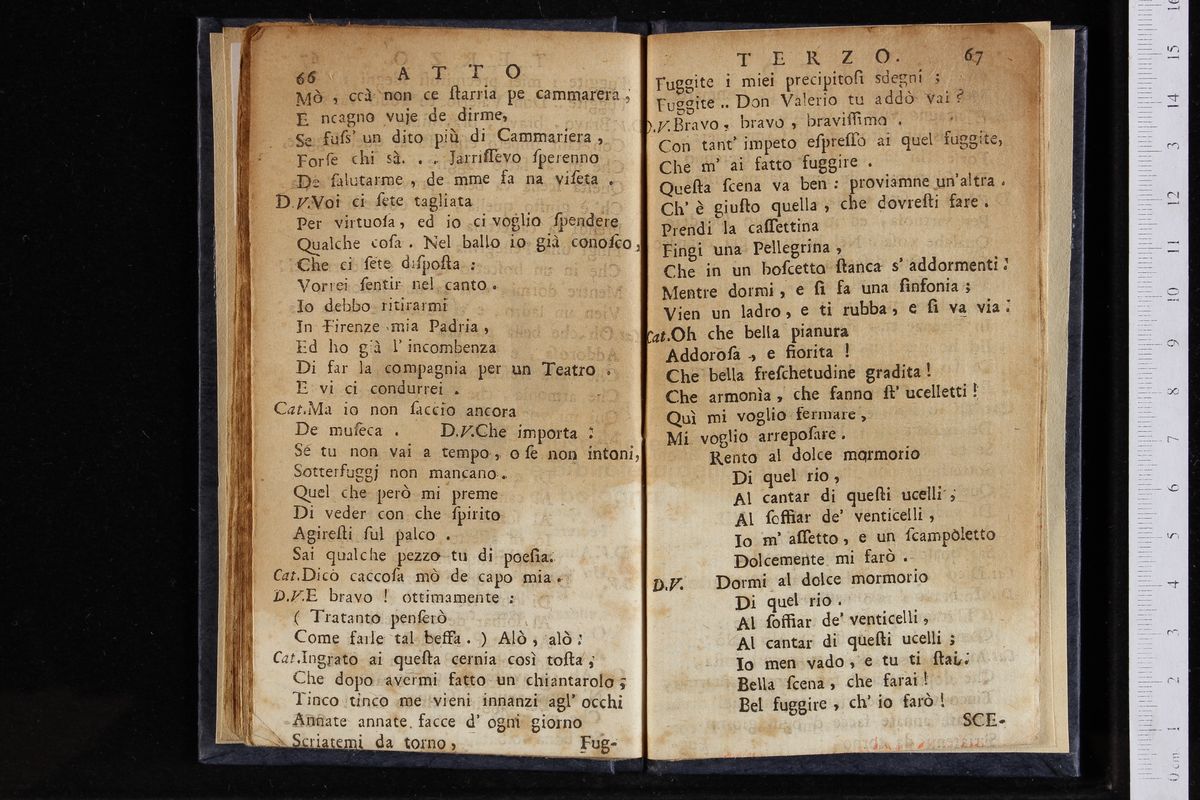 66 A T T O
Mò , ccà non ce ſtarria pe cammarera ;
E ncagno vuje de dirme,
Se fuſs' un dito più di Cammariera ,
Forſe chi sà. . . Jarriſſevo ſperenno
De ſalutarme , de mme fa na viſeta .
D.V.Voi ci ſete tagliata
Per virtuoſa , ed io ci voglio ſpendere
Qualche coſa . Nel ballo io già conoſco,
Che ci ſete diſpoſta :
Vorrei ſentir nel canto .
Io debbo ritirarmi
In Firenze mia Padria ,
Ed ho già l' incombenza
Di far la compagnia per un Teatro .
E vi ci condurrei .
Cat.Ma io non ſaccio ancora
De muſeca . D.V.Che importa :
Se tu non vai a tempo , o ſe non intoni,
Sotterfuggj non mancano .
Quel che però mi preme
Di veder con che ſpirito
Agireſti ſul palco .
Sai qualche pezzo tu di poeſia.
Cat.Dicò caccoſa mò de capo mia .
D.V.E bravo ! ottimamente :
( Tratanto penſerò
Come farle tal beffa . ) Alò , alò :
Cat.Ingrato ai queſta cernia così toſta ,
Che dopo avermi fatto un chiantarolo ;
Tinco tinco me vieni innanzi agl' occhi
Annate annate facce d' ogni giorno
Scriatemi da torno ,
Fug-
T E R Z O. 67
Fuggite i miei precipitoſi sdegni ;
Fuggite .. Don Valerio tu addò vai ?
D.V.Bravo , bravo , braviſſimo .
Con tant' impeto eſpreſſo ai quel fuggite,
Che m' ai fatto fuggire .
Queſta ſcena va ben : proviamne un'altra .
Ch' è giuſto quella , che dovreſti fare .
Prendi la caſſettina
Fingi una Pellegrina ,
Che in un boſcetto ſtanca s' addormenti :
Mentre dormi , e ſi fa una ſinfonia ;
Vien un ladro , e ti rubba , e ſi va via :
Cat.Oh che bella pianura
Addoroſa , e fiorita !
Che bella freſchetudine gradita !
Che armonìa , che fanno ſt' ucelletti !
Quì mi voglio fermare ,
Mi voglio arrepoſare .
Rento al dolce mormorio
Di quel rio ,
Al cantar di queſti ucelli ;
Al ſoffiar de' venticelli ,
Io m' aſſetto , e un ſcampoletto
Dolcemente mi farò .
D.V. Dormi al dolce mormorio
Di quel rio .
Al ſoffiar de' venticelli ,
Al cantar di queſti ucelli ;
Io men vado , e tu ti ſtai :
Bella ſcena , che farai !
Bel fuggire , ch' io farò !
SCE-
0 cm 1 2 3 4 5 6 7 8 9 10 11 12 13 14 15 16